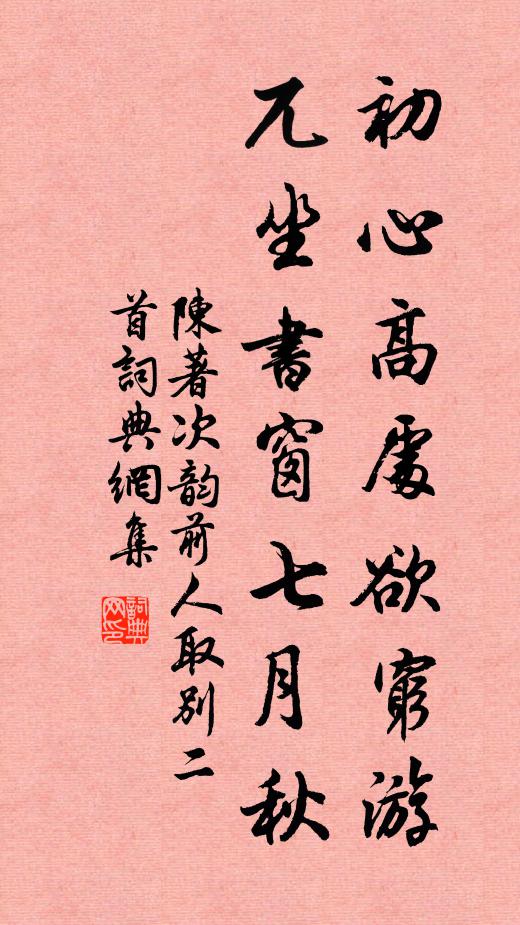 初心高處欲窮游
兀坐書窗七月秋
陳著次韵前人取別二
首詞典網集
詞典网印